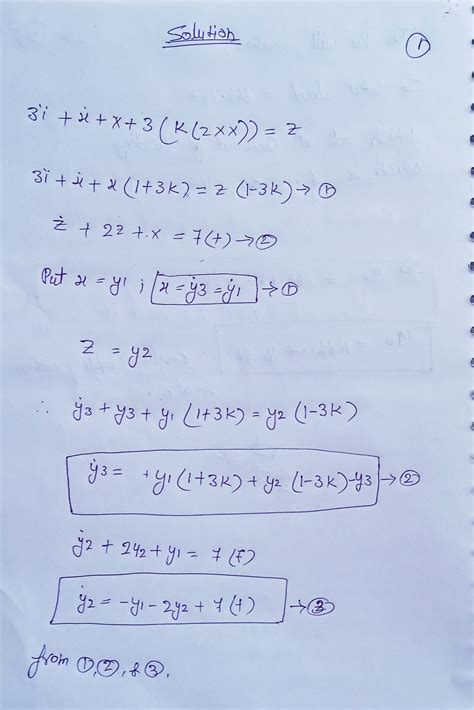 Solution
①
3ï + ẋ + x + 3(K(z×x)) = z
3ï + ẋ + x(1+3K) = z(1-3K) → ①
ż + 2z + x = 7(t) → ②
Put x = y1 ; ẋ = ẏ3 = ẏ1 → ①
z = y2
∴ ẏ3 + y3 + y1(1+3K) = y2(1-3K)
ẏ3 = +y1(1+3K) + y2(1-3K) - y3 → ②
ẏ2 + 2y2 + y1 = 7(t)
ẏ2 = -y1 - 2y2 + 7(t) → ③
from ①, ②, & ③.